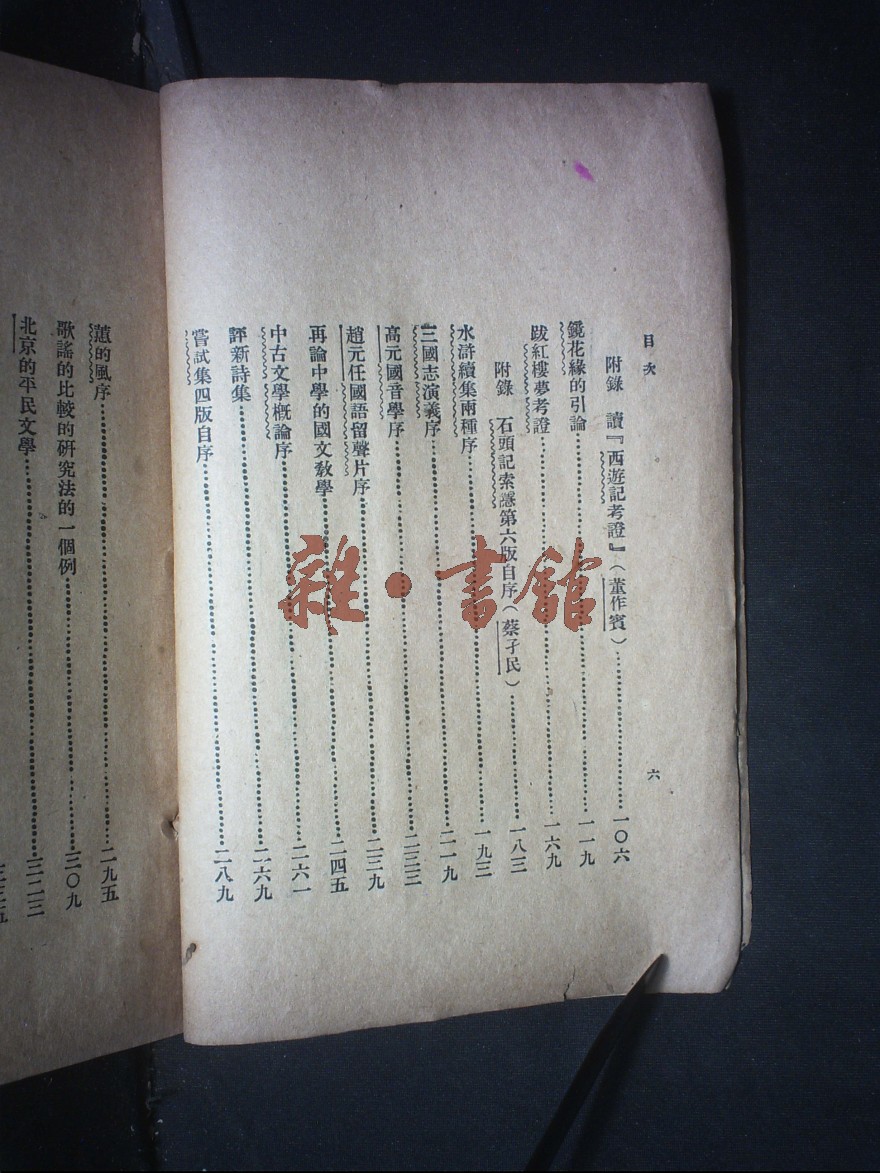 目次
六
附錄 讀『西遊記考證』(董作賓)……一〇六
鏡花緣的引論……一一九
跋紅樓夢考證……一六九
附錄 石頭記索隱第六版自序(蔡孑民)……一八三
水滸續集兩種序……一九三
三國志演義序……二一九
高元國音學序……二三三
趙元任國語留聲片序……二三九
再論中學的國文教學……二四五
中古文學概論序……二六一
評新詩集……二六九
嘗試集四版自序……二八九
蕙的風序……二九五
歌謠的比較的研究法的一個例……三〇九
北京的平民文學……三二三
雜·書館